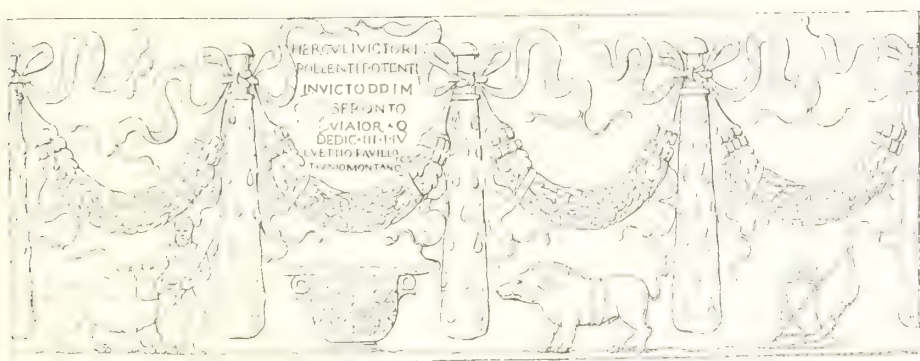 HERCVLI VICTORI
POLLENTI POTENTI
INVICTO D D I M
SERONTO
VIATOR Q
DEDIC III I IV
VETTIO
MONTANO